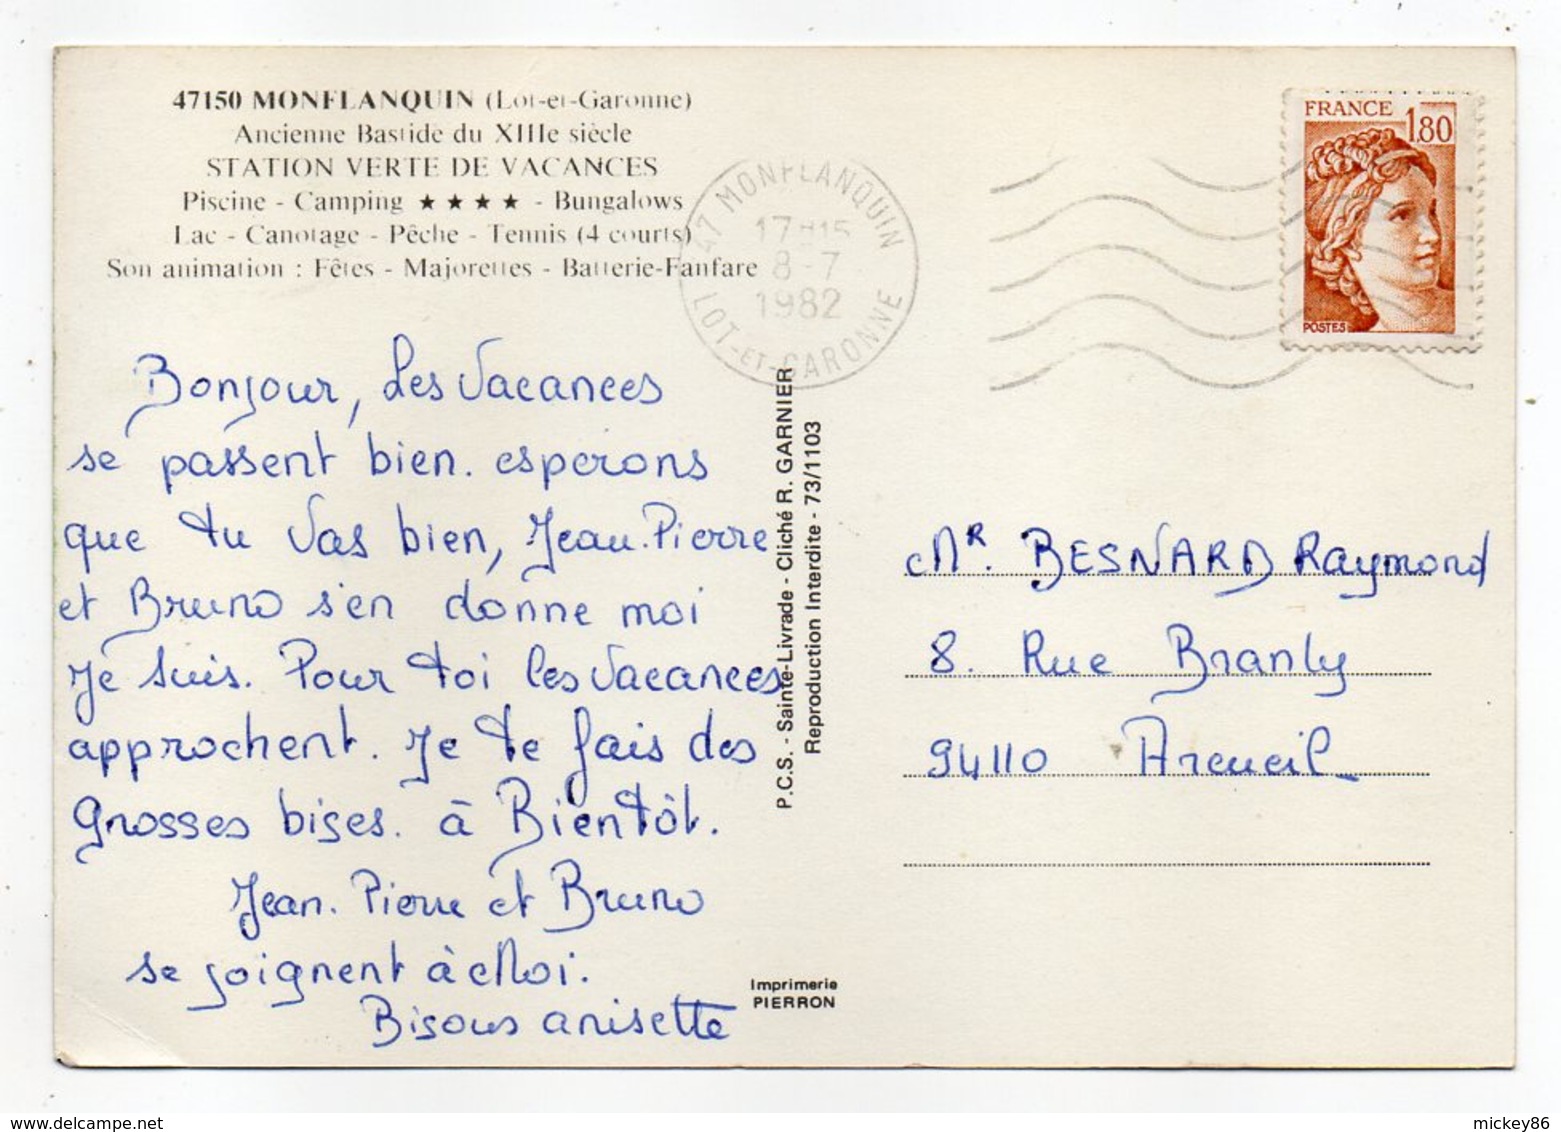 47150 MONFLANQUIN (Lot-et-Garonne)
Ancienne Bastide du XIIIe siècle
STATION VERTE DE VACANCES
Piscine - Camping ★★★★ - Bungalows
Lac - Canotage - Pêche - Tennis (4 courts)
Son animation : Fêtes - Majorettes - Batterie-Fanfare
47 MONFLANQUIN
17H15
8-7
1982
LOT-ET-GARONNE
FRANCE 1,80
POSTES
Bonjour, Les Vacances
se passent bien. esperons
que tu Vas bien, Jean.Pierre
et Bruno s'en donne moi
Je suis. Pour toi les Vacances
approchent. Je te fais des
Grosses bises. à Bientôt.
Jean. Pierre et Bruno
se joignent à Moi.
Bisous anisette
P.C.S. - Sainte-Livrade - Cliché R. GARNIER
Reproduction Interdite - 73/1103
Imprimerie
PIERRON
Mr. BESNARD Raymond
8. Rue Branly
94110 Arcueil
mickey86